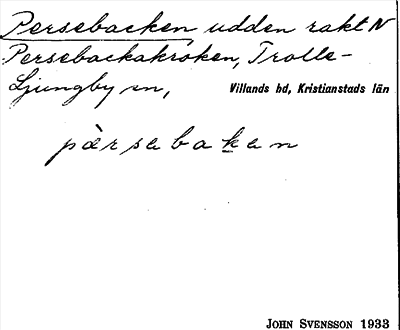 Persebacken, udden rakt N
Persebackakroken, Trolle-
Ljungby sn, Villands hd, Kristianstads län
pàrsebaken
JOHN SVENSSON 1933